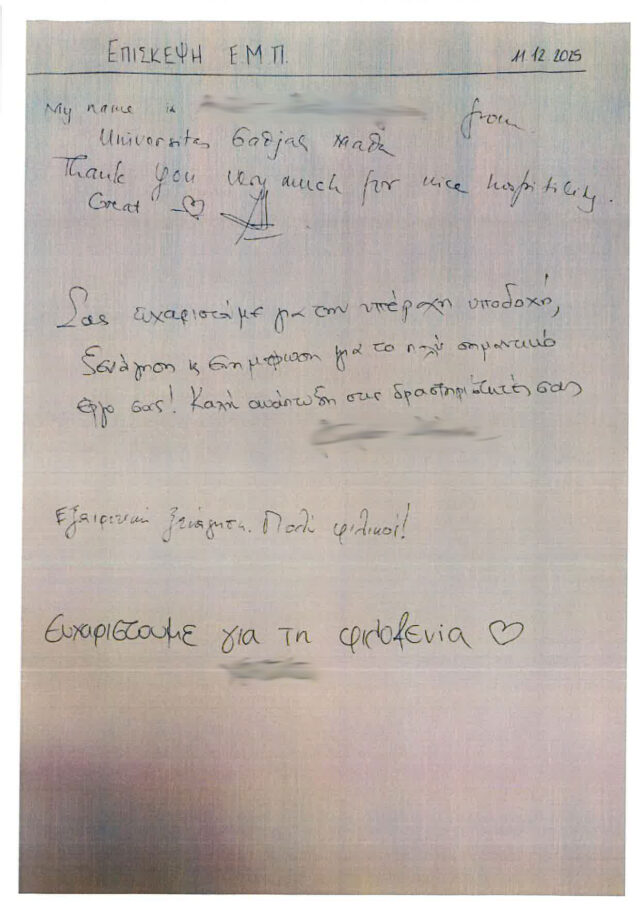 ΕΠΙΣΚΕΨΗ Ε.Μ.Π. 11.12.2025
My name is from
Universitas
Thank you very much for nice hospitility.
Great ♡
Σας ευχαριστούμε για την υπέροχη υποδοχή,
ξενάγηση κ ενημέρωση για το πολύ σημαντικό
έργο σας! Καλή ανάπτυξη στις δραστηριότητές σας
Εξαιρετική ξενάγηση. Πολύ φιλικοί!
Ευχαριστουμε για τη φιλοξενια ♡